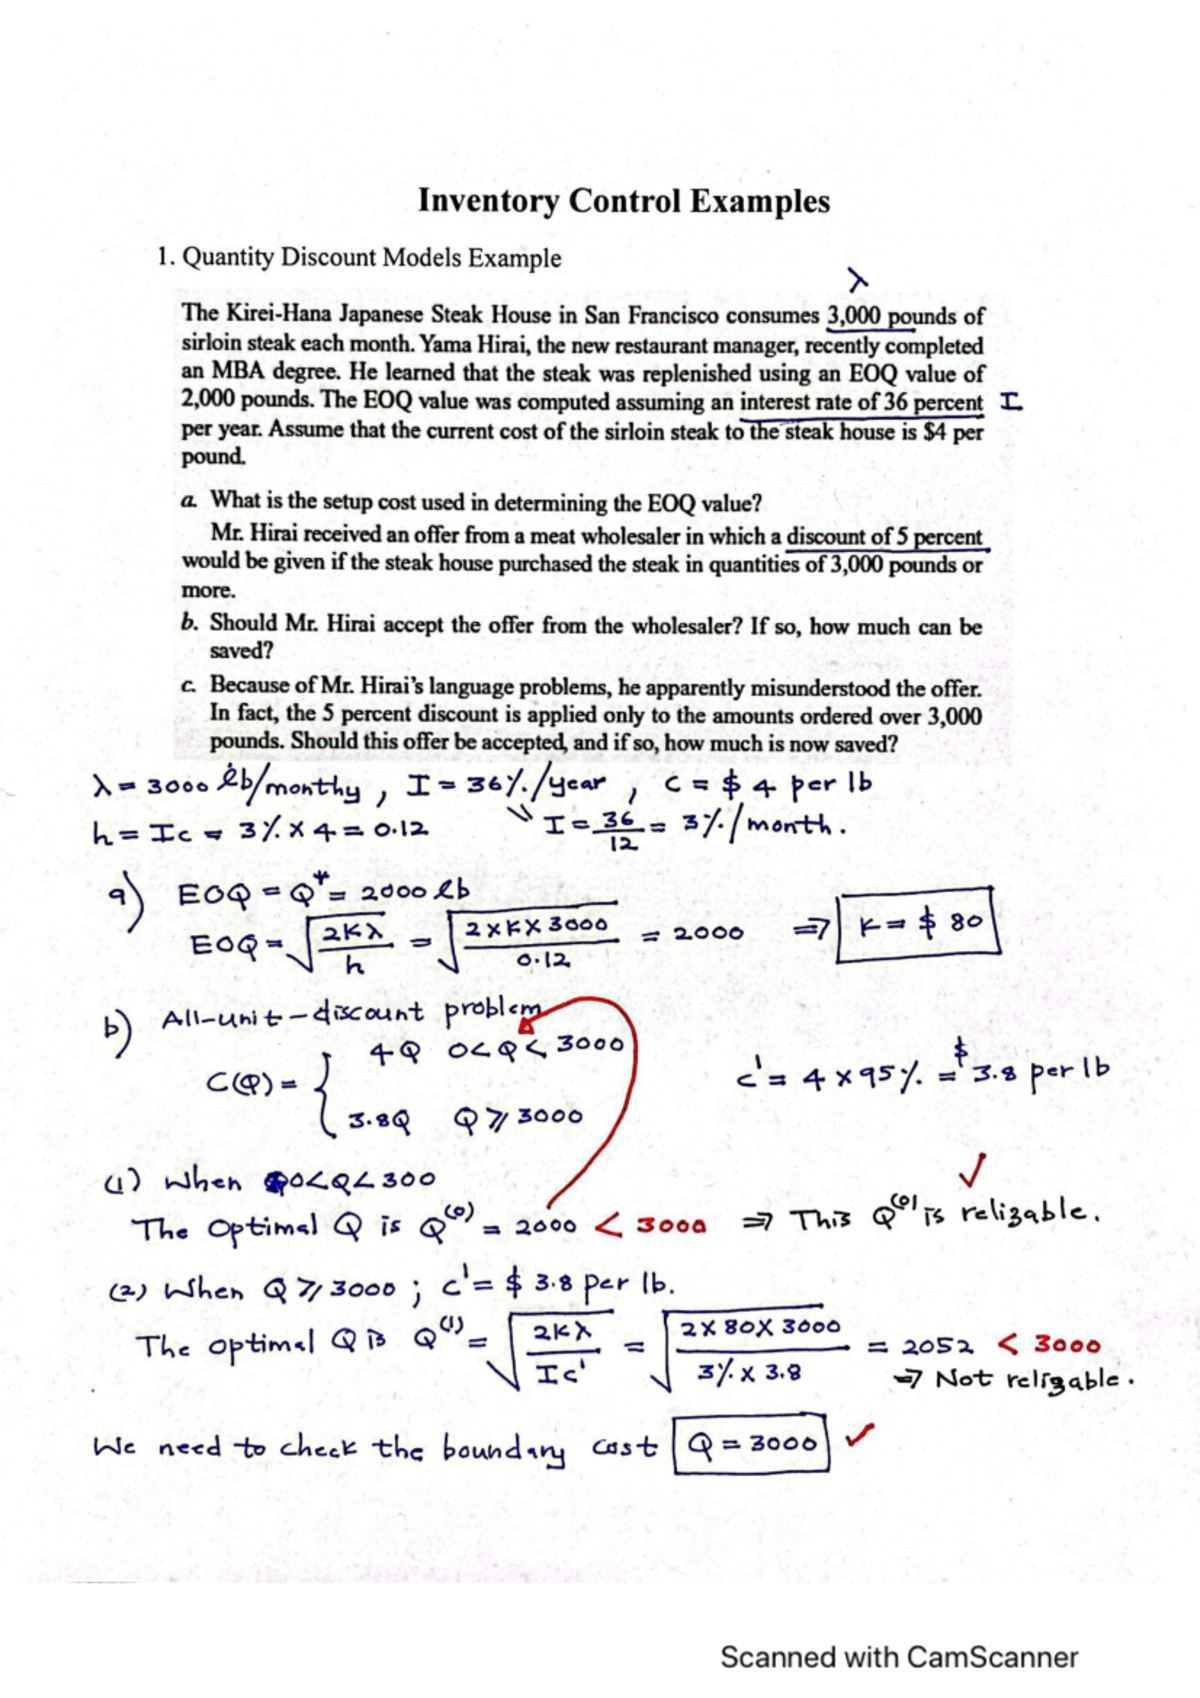 Inventory Control Examples
1. Quantity Discount Models Example
λ
The Kirei-Hana Japanese Steak House in San Francisco consumes 3,000 pounds of
sirloin steak each month. Yama Hirai, the new restaurant manager, recently completed
an MBA degree. He learned that the steak was replenished using an EOQ value of
2,000 pounds. The EOQ value was computed assuming an interest rate of 36 percent I
per year. Assume that the current cost of the sirloin steak to the steak house is $4 per
pound.
a. What is the setup cost used in determining the EOQ value?
Mr. Hirai received an offer from a meat wholesaler in which a discount of 5 percent
would be given if the steak house purchased the steak in quantities of 3,000 pounds or
more.
b. Should Mr. Hirai accept the offer from the wholesaler? If so, how much can be
saved?
c. Because of Mr. Hirai's language problems, he apparently misunderstood the offer.
In fact, the 5 percent discount is applied only to the amounts ordered over 3,000
pounds. Should this offer be accepted, and if so, how much is now saved?
λ = 3000 lb/monthy , I = 36%/year , c = $ 4 per lb
h = Ic = 3% x 4 = 0.12 ⇓ I = 36/12 = 3%/month.
a) EOQ = Q* = 2000 lb
EOQ = √(2Kλ/h) = √(2xKx3000/0.12) = 2000 ⇒ K = $ 80
b) All-unit-discount problem
C(Q) = { 4Q 0<Q<3000
3.8Q Q ≥ 3000
c' = 4 x 95% = $3.8 per lb
(1) When 0<Q<300
The Optimal Q is Q⁽⁰⁾ = 2000 < 3000 ⇒ This Q⁽⁰⁾ is relizable. ✓
(2) When Q ≥ 3000 ; c' = $ 3.8 per lb.
The optimal Q is Q⁽¹⁾ = √(2Kλ/Ic') = √(2x80x3000/3%x3.8) = 2052 < 3000
⇒ Not relizable.
We need to check the boundary cost Q = 3000 ✓
Scanned with CamScanner